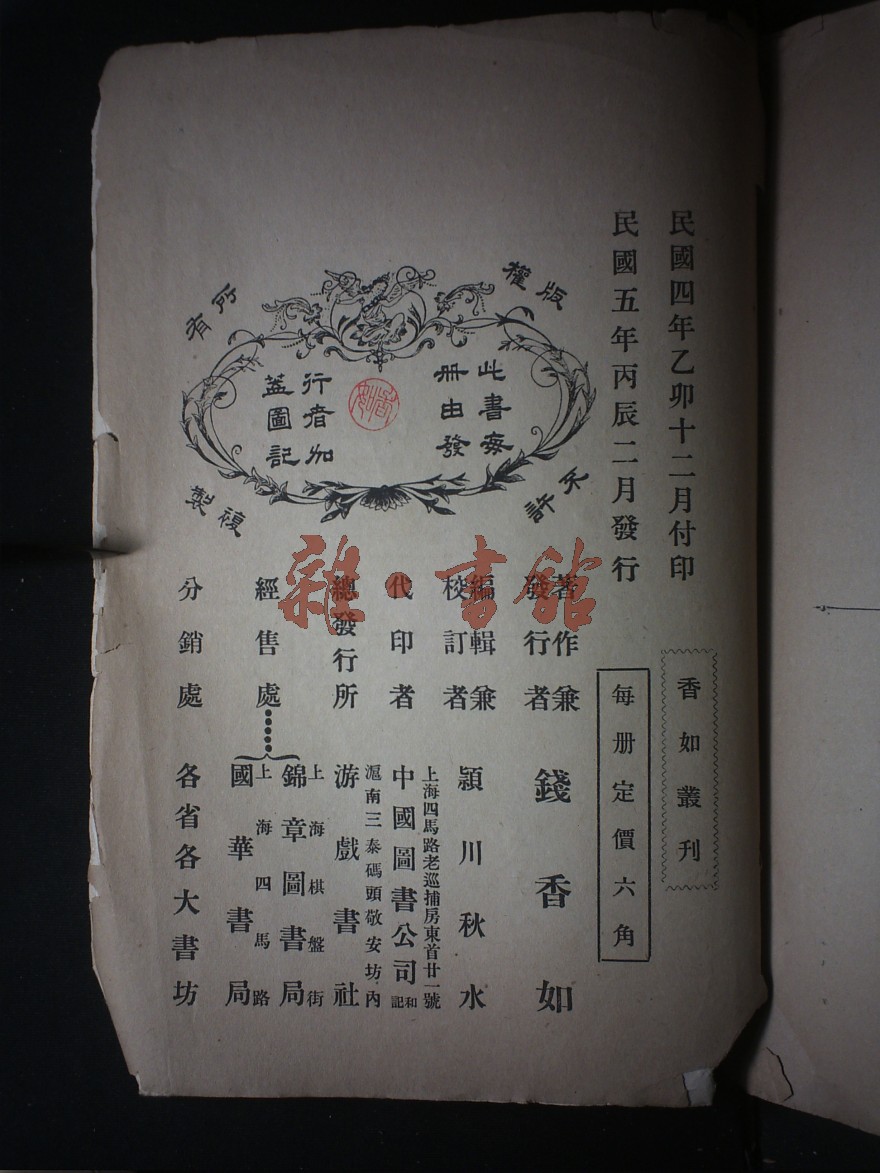 民國四年乙卯十二月付印
民國五年丙辰二月發行
香如叢刊
每册定價六角
版權
所有
不許
複製
此書每
册由發
行者加
蓋圖記
著作兼
發行者
錢香如
編輯兼
校訂者
潁川秋水
代印者
上海四馬路老巡捕房東首廿一號
中國圖書公司和記
總發行所
滬南三泰碼頭敬安坊內
游戲書社
經售處
上海棋盤街
錦章圖書局
上海四馬路
國華書局
分銷處
各省各大書坊
雜·書館